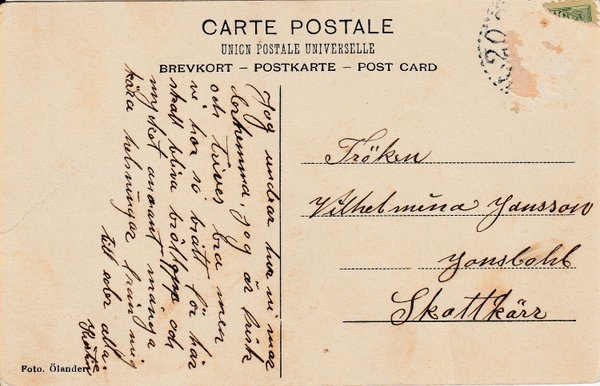 CARTE POSTALE
UNION POSTALE UNIVERSELLE
BREVKORT – POSTKARTE – POST CARD
20
Jog undrar hur ni mår
derhemma, jog är frisk
och trives bra men
ni har så brått för här
skall bliva bröllopp och
mycket anoant många
kära helsningar från mig
till eder alla.
Fröken
Vilhelmina Jansson
Jonsbohl
Skattkärr
Foto. Ölander.